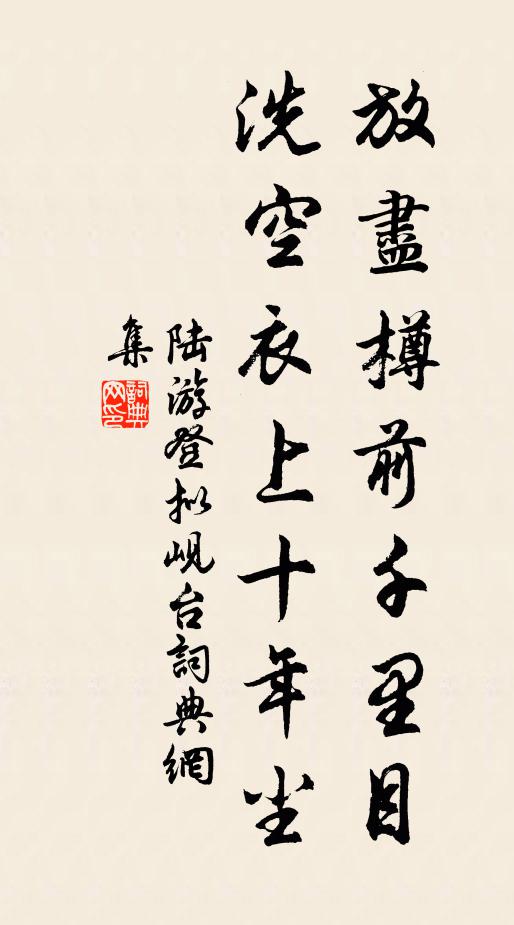 放盡樽前千里目
洗空衣上十年尘
陆游登拟岘台詞典網
集
詞典
网印